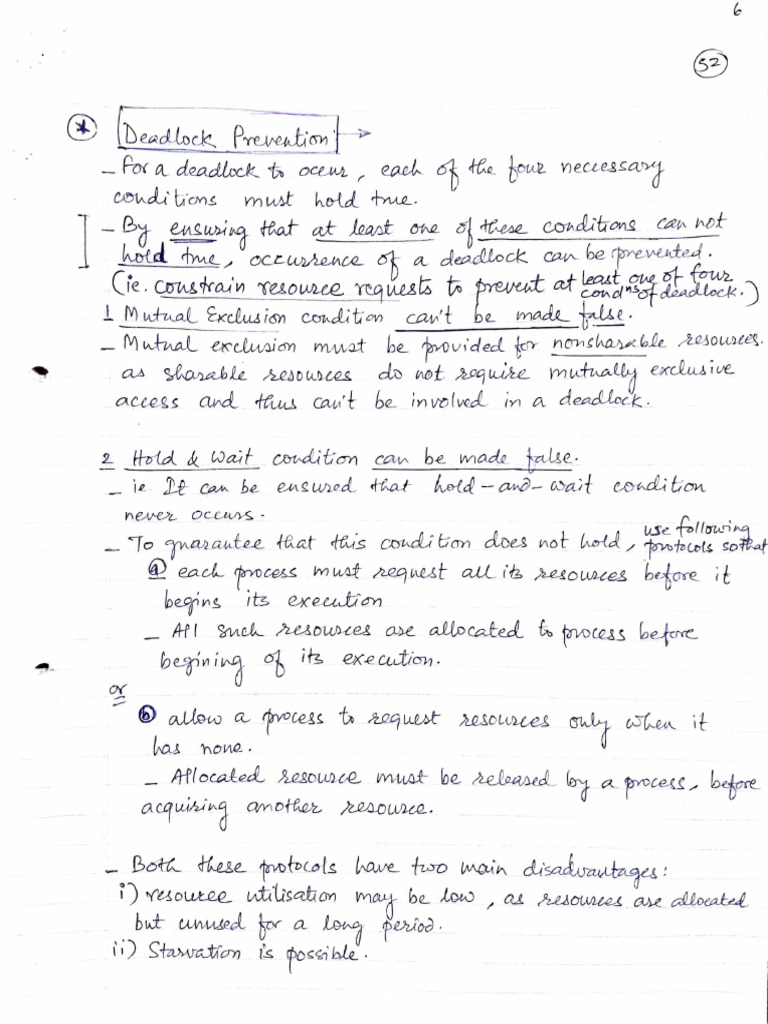 6
52
* Deadlock Prevention: →
- For a deadlock to occur, each of the four neccessary
conditions must hold true.
- By ensuring that at least one of these conditions can not
hold true, occurrence of a deadlock can be prevented.
(ie. constrain resource requests to prevent at least one of four
condns of deadlock.)
1 Mutual Exclusion condition can't be made false.
- Mutual exclusion must be provided for nonsharable resources.
as sharable resources do not require mutually exclusive
access and thus can't be involved in a deadlock.
2 Hold & Wait condition can be made false.
- ie. It can be ensured that hold-and-wait condition
never occurs.
- To guarantee that this condition does not hold, use following
protocols so that
(a) each process must request all its resources before it
begins its execution
- All such resources are allocated to process before
begining of its execution.
or
(b) allow a process to request resources only when it
has none.
- Allocated resource must be released by a process, before
acquiring another resource.
- Both these protocols have two main disadvantages:
i) resource utilisation may be low, as resources are allocated
but unused for a long period.
ii) Starvation is possible.